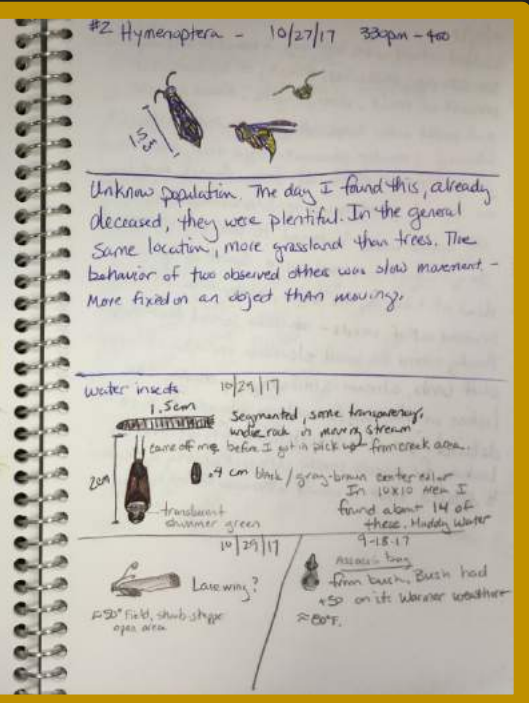 #2 Hymenoptera - 10/27/17 330pm - 400
1.5cm
Unknow population. The day I found this, already
deceased, they were plentiful. In the general
Same location, more grassland than trees. The
behavior of two observed others was slow movement. -
More fixed on an object than moving.
water insects 10/29/17
1.5cm
segmented, some transparency,
under rock in moving stream
came off me before I got in pick up from creek area.
2cm
.4 cm black / gray-brown center color
In 10x10 area I
found about 14 of
these. Muddy Water
translucent
shimmer green
10/29/17
Lacewing?
≈50° Field, shrub steppe
open area
9-18-17
Assassin bug
from bush, Bush had
+50 on it. Warmer weather
≈80°F.